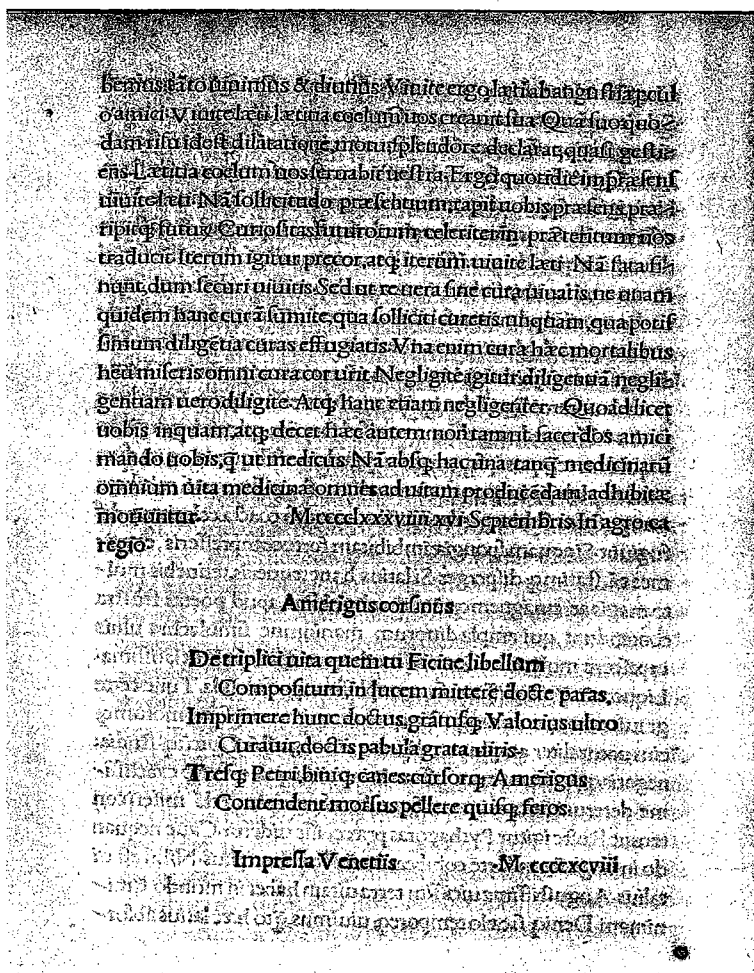 bemus tāto minimus & diutius. Viuite ergo læti ab angustia pcul
o amici. Viuite læti lætitia coelum uos creauit sua. Quā suo quo-
dam risu idest dilatatione, motu splendore declarat, quasi gestie
ens. Lætitia coelum uos seruabit uestra. Ergo quotidie in præsens
uiuite læti. Nā sollicitudo præsentium rapit uobis præsens præ
ripitq; futurū. Curiositas futurorum celeriter in præteritum uos
traducit. Iterum igitur precor, atq; iterum uiuite læti. Nā fata si-
nunt, dum securi uiuitis. Sed ut re uera sine cura uiuatis, ne unam
quidem hanc curā sumite, qua solliciti curetis unquam, qua potis
simum diligētia curas effugiatis. Vna enim cura hæc mortalibus
heu miseris omni cura cor urit. Negligite igitur diligentiā negli-
gentiam uero diligite. Atq; hanc etiam negligenter. Quoad licet
uobis inquam, atq; decet hæc autem non tam ut sacerdos amici
mando uobis, q̄ ut medicus. Nā absq; hac una tanq̄ medicinarū
omnium uita medicinæ omnes ad uitam producēdam adhibitæ
moriuntur. M.cccclxxxviiii.xvi. Septembris In agro ca
regio.
Amerigus corsinus
De triplici uita quem tu Ficine libellum
Compositum, in lucem mittere docte paras,
Imprimere hunc doctus, gratusq; Valorius ultro
Curauit, doctis pabula grata uiris.
Tresq; Petri, biniq; canes, cursorq; Amerigus
Contendent morsus pellere quisq; feros.
Impressa Venetiis M.ccccxcviii